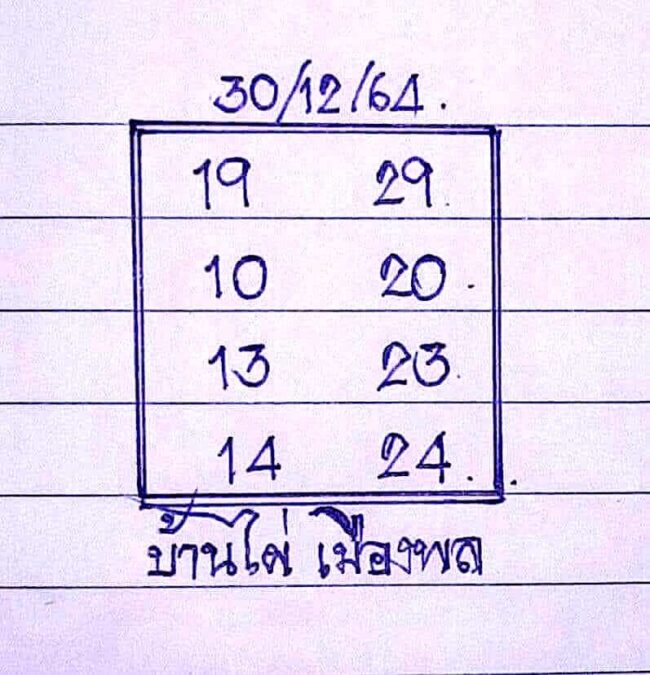 30/12/64.
19 29.
10 20.
13 23.
14 24..
บ้านไผ่ เมืองพล